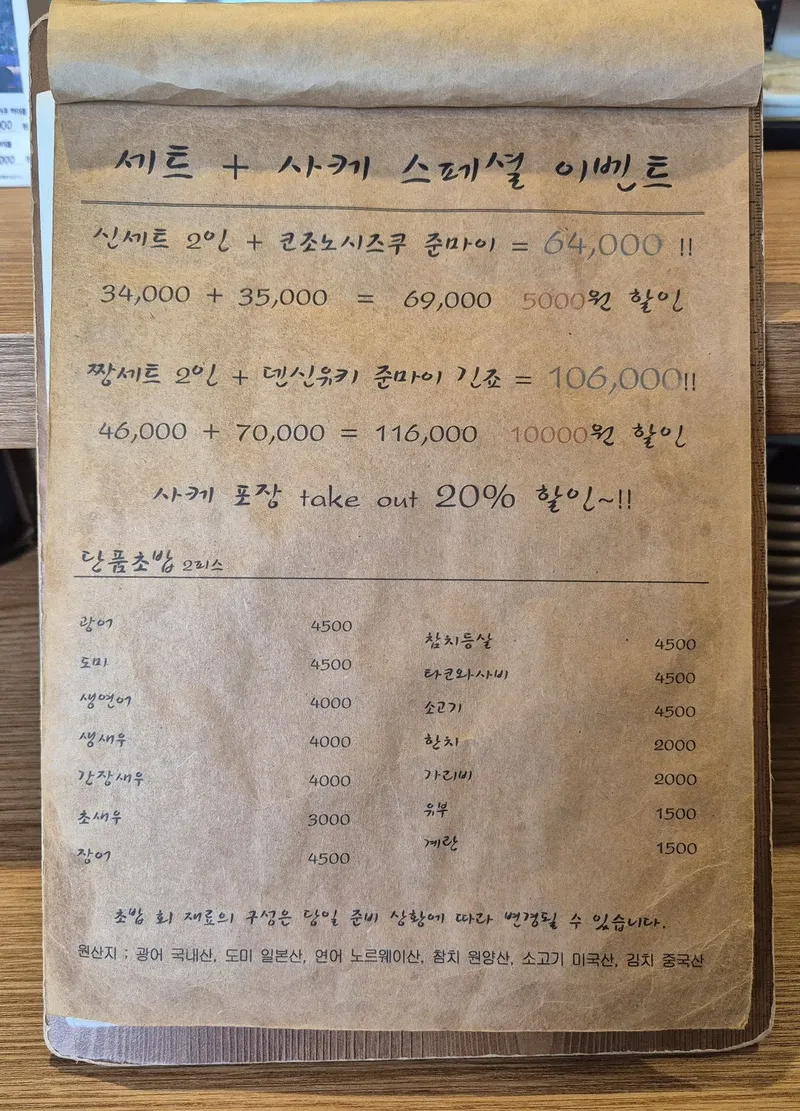 세트 + 사케 스페셜 이벤트
신세트 2인 + 코조노시즈쿠 준마이 = 64,000 !!
34,000 + 35,000 = 69,000 5000원 할인
짱세트 2인 + 덴신유키 준마이 긴죠 = 106,000!!
46,000 + 70,000 = 116,000 10000원 할인
사케 포장 take out 20% 할인~!!
단품초밥 2피스
광어 4500
도미 4500
생연어 4000
생새우 4000
간장새우 4000
초새우 3000
장어 4500
참치등살 4500
타코와사비 4500
소고기 4500
한치 2000
가리비 2000
유부 1500
계란 1500
초밥 회 재료의 구성은 당일 준비 상황에 따라 변경될 수 있습니다.
원산지 ; 광어 국내산, 도미 일본산, 연어 노르웨이산, 참치 원양산, 소고기 미국산, 김치 중국산